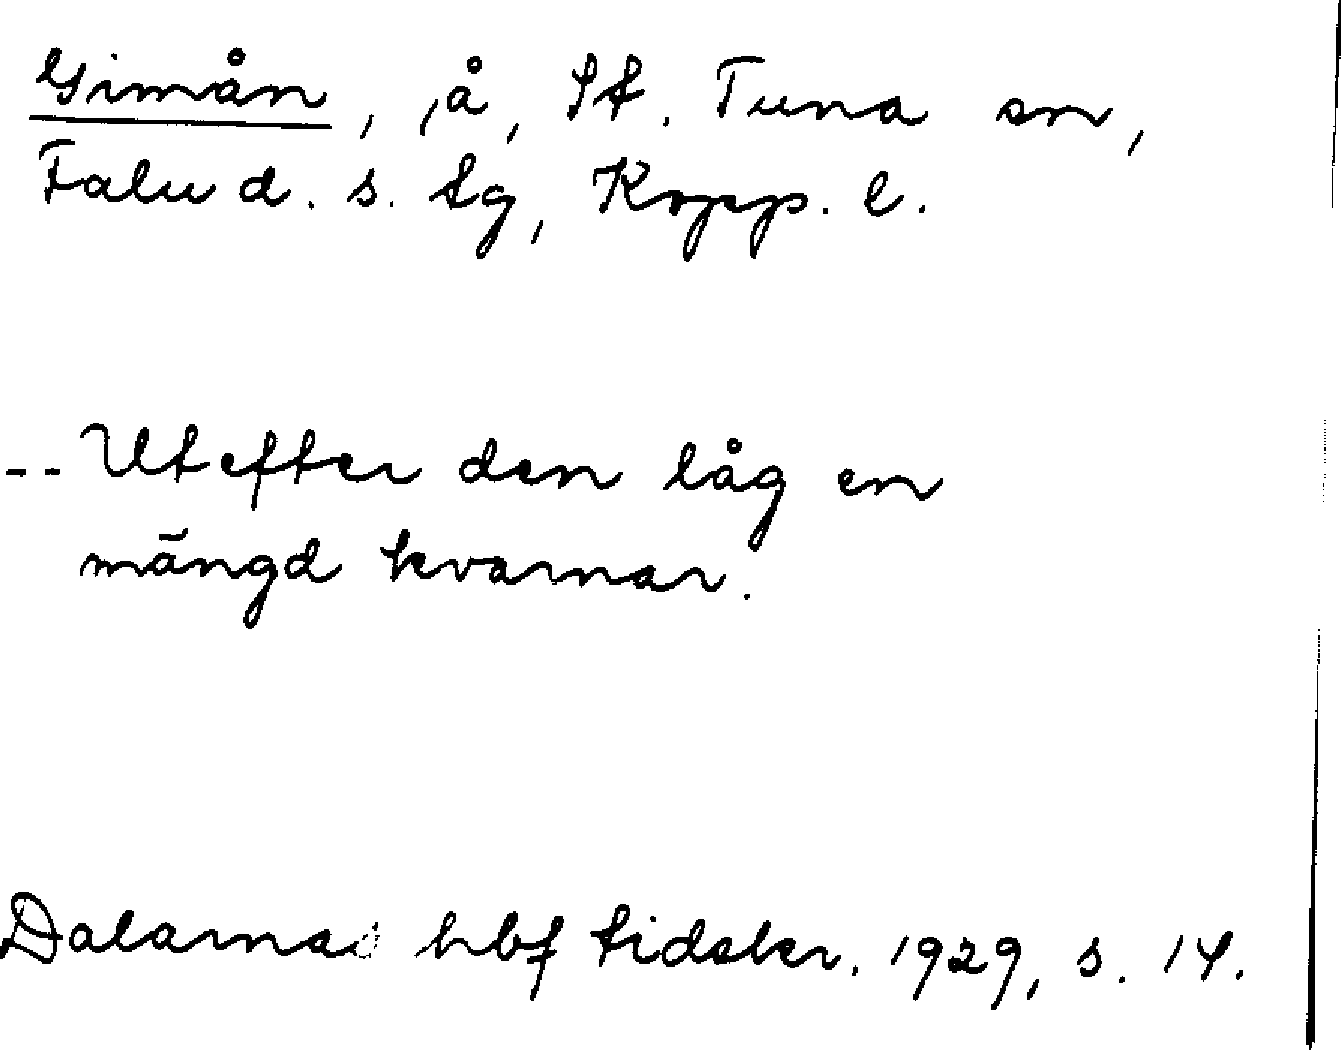 Gimån, å, St. Tuna sn,
Falu d. s. tg, Kopp. l.
-- Utefter den låg en
mängd kvarnar.
Dalarnas hbf tidskr. 1929, s. 14.